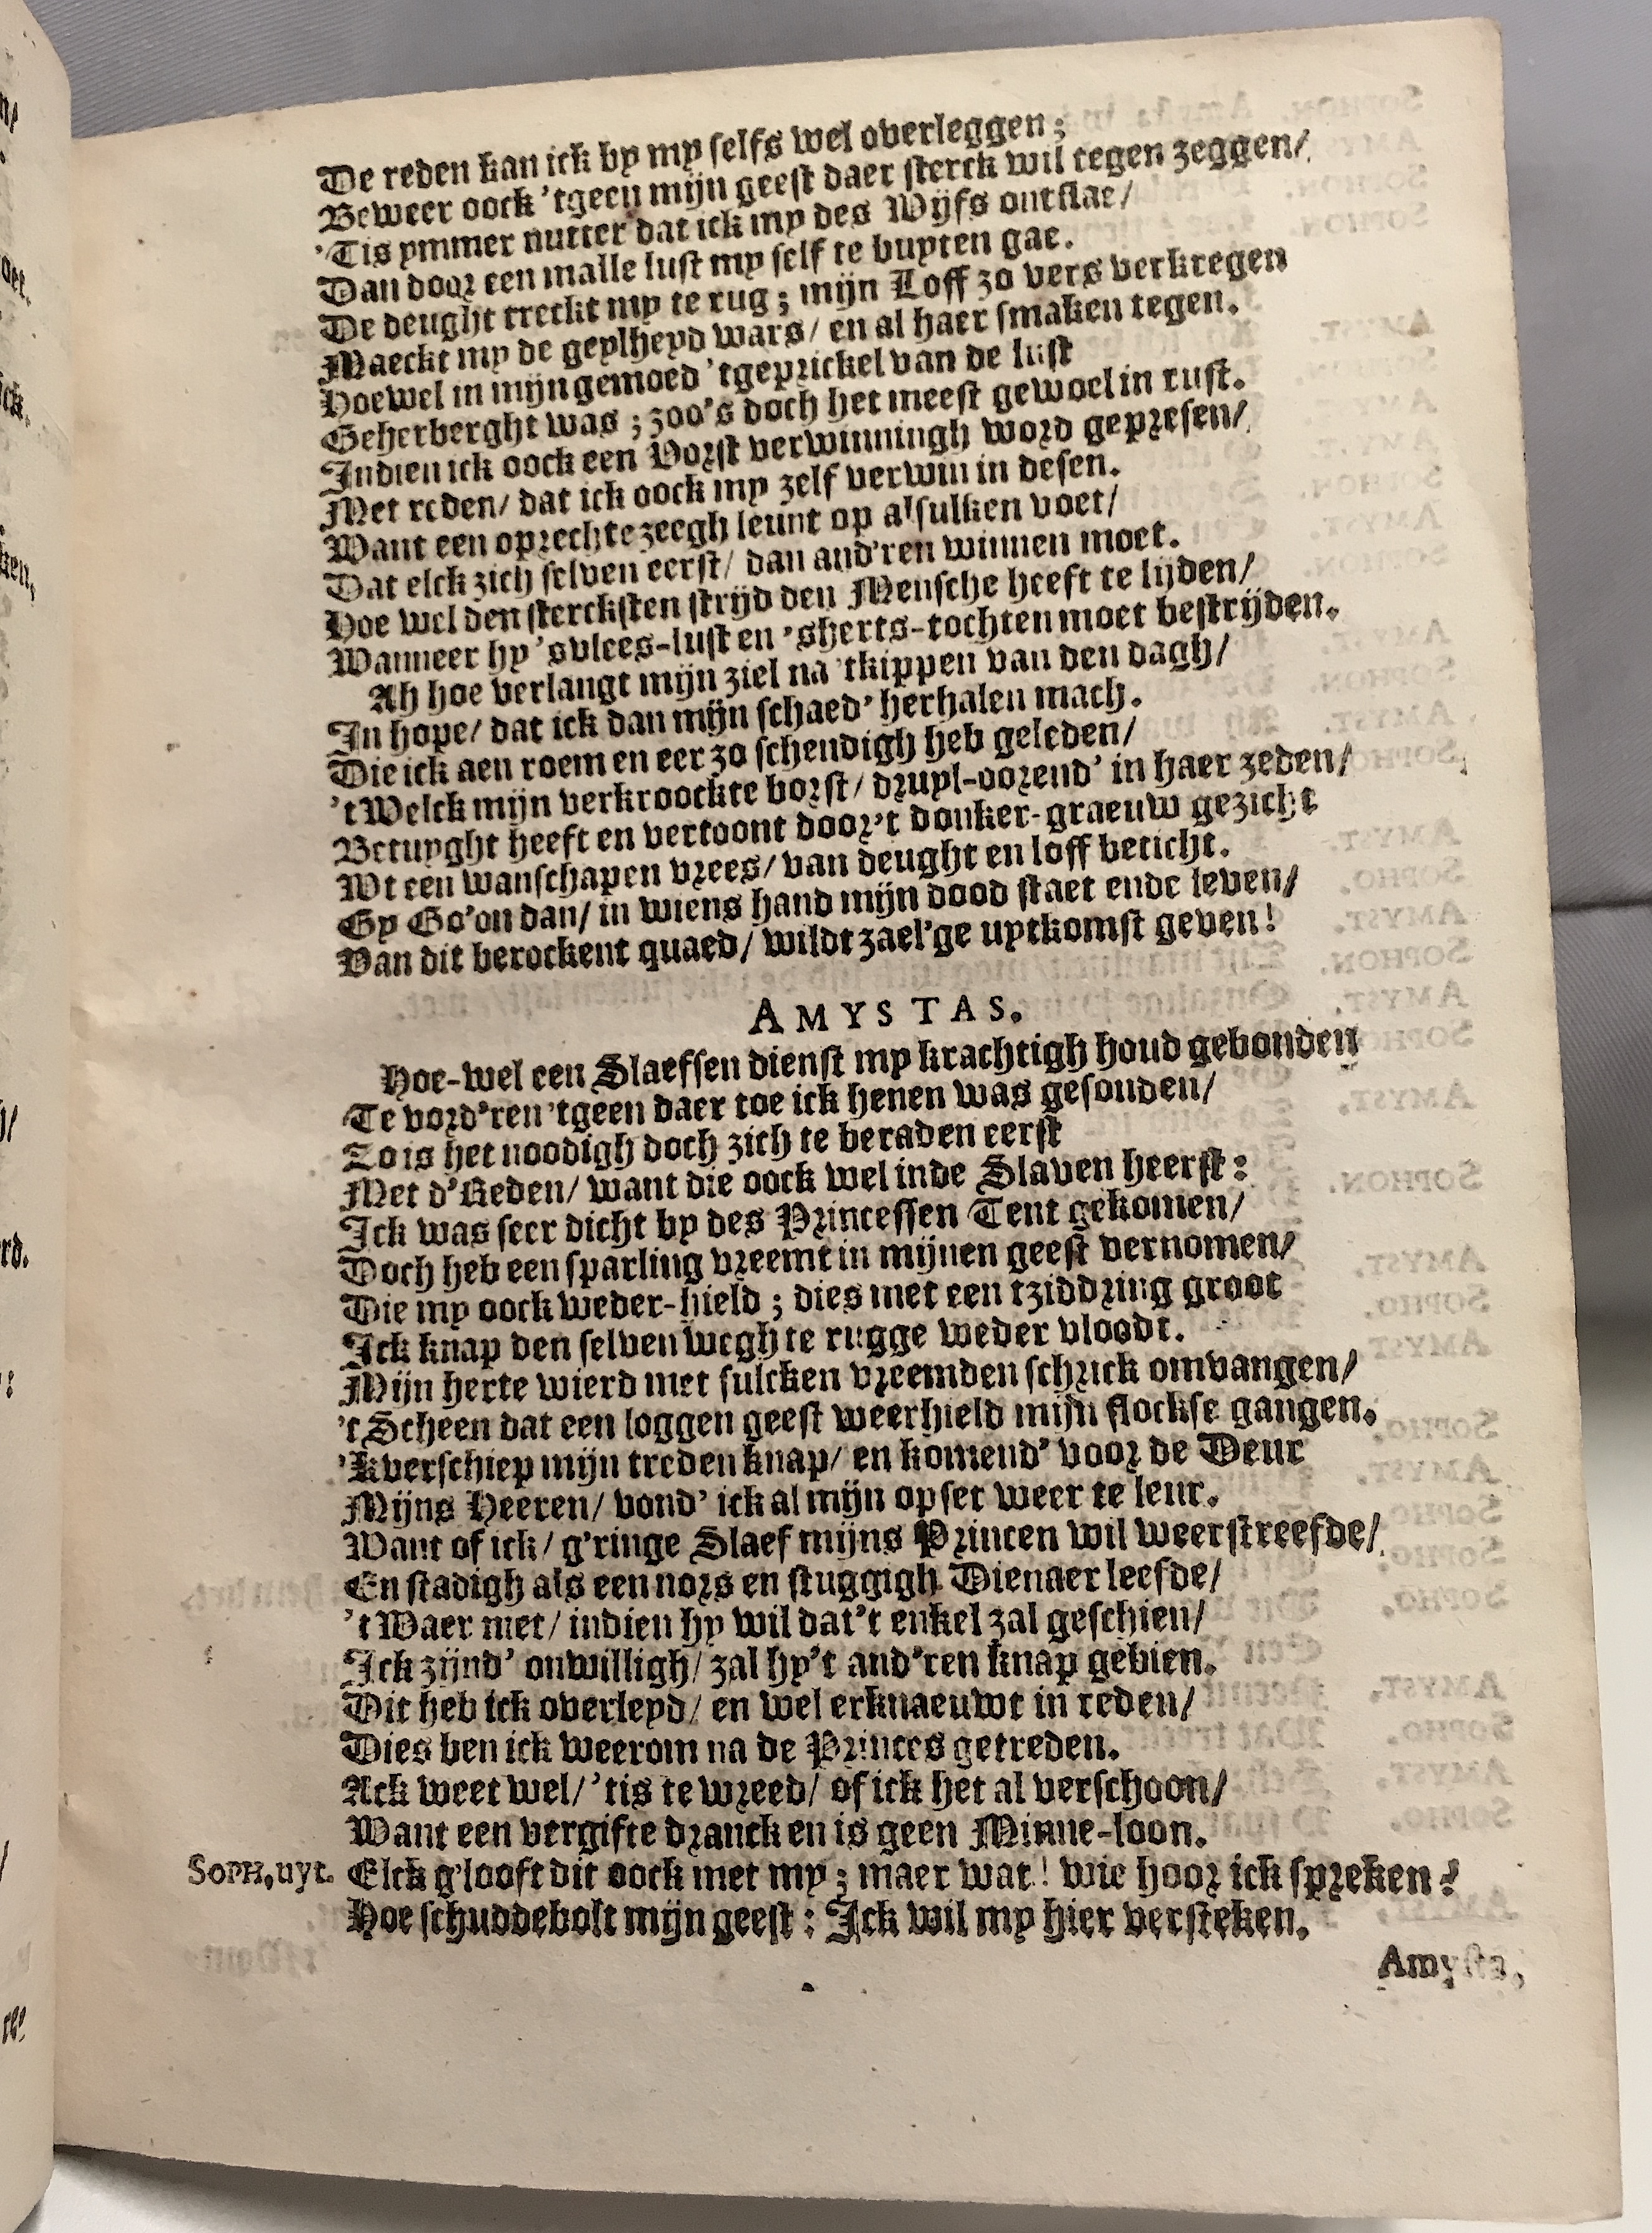 De reden kan ick by my selfs wel overleggen;
Beweer oock 'tgeen mijn geest daer sterck wil tegen zeggen/
'Tis ymmer nutter dat ick my des Wijfs ontslae/
Dan door een malle lust my self te buyten gae.
De deught treckt my te rug; mijn Loff zo vers verkregen
Maeckt my de geylheyd wars/ en al haer smaken tegen.
Hoewel in mijn gemoed 'tgeprickel van de lust
Geherberght was; zoo's doch het meest gewoel in rust.
Indien ick oock een Vorst verwinningh word gepresen/
Met reden/ dat ick oock my zelf verwin in desen.
Want een oprechte zeegh leunt op alsulken voet/
Dat elck zich selven eerst/ dan and'ren winnen moet.
Hoe wel den stercksten strijd den Mensche heeft te lijden/
Wanneer hy 'svlees-lust en 'sherts-tochten moet bestrijden.
Ah hoe verlangt mijn ziel na 'tkippen van den dagh/
In hope/ dat ick dan mijn schaed' herhalen mach.
Die ick aen roem en eer zo schendigh heb geleden/
't Welck mijn verkroockte borst/ druyl-oorend' in haer zeden/
Betuyght heeft en vertoont door't donker-graeuw gezicht
Wt een wanschapen vrees/ van deught en loff beticht.
Gy Go'on dan/ in wiens hand mijn dood staet ende leven/
Van dit berockent quaed/ wildt zael'ge uytkomst geven!
AMYSTAS.
Hoe-wel een Slaefsen dienst my krachtigh houd gebonden
Te vord'ren 'tgeen daer toe ick henen was gesonden/
Zo is het noodigh doch zich te beraden eerst
Met d'Reden/ want die oock wel inde Slaven heerst:
Ick was seer dicht by des Princessen Tent gekomen/
Doch heb een sparling vreemt in mijnen geest vernomen/
Die my oock weder-hield; dies met een tziddring groot
Ick knap den selven wegh te rugge weder vloodt.
Mijn herte wierd met sulcken vreemden schrick omvangen/
't Scheen dat een loggen geest weerhield mijn flockse gangen.
'Kverschiep mijn treden knap/ en komend' voor de Deur
Mijns Heeren/ vond' ick al mijn opset weer te leur.
Want of ick/ g'ringe Slaef mijns Princen wil weerstreefde/
En stadigh als een nors en stuggigh Dienaer leefde/
't Waer niet/ indien hy wil dat't enkel zal geschien/
Ick zijnd' onwilligh/ zal hy't and'ren knap gebien.
Dit heb ick overleyd/ en wel erknaeuwt in reden/
Dies ben ick weerom na de Princes getreden.
Ack weet wel/ 'tis te wreed/ of ick het al verschoon/
Want een vergifte dranck en is geen Minne-loon.
SOPH, uyt. Elck g'looft dit oock met my; maer wat! wie hoor ick spreken?
Hoe schuddebolt mijn geest: Ick wil my hier versteken.
Amysta,